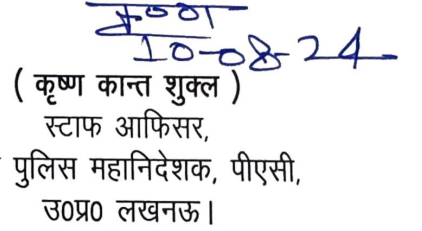 10-08-24
( कृष्ण कान्त शुक्ल )
स्टाफ आफिसर,
पुलिस महानिदेशक, पीएसी,
उ०प्र० लखनऊ।